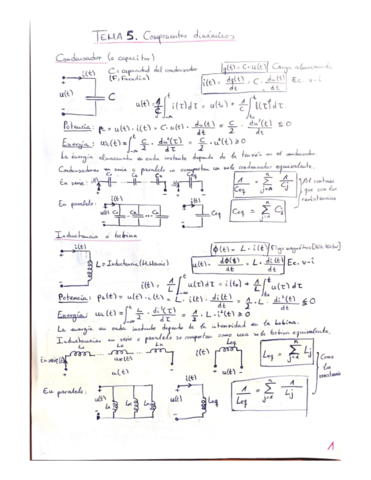 TEMA 5. Componentes dinámicos
Condensador (o capacitor)
i(t)
u(t)
C
C = capacidad del condensador
(F, Faradio)
q(t) = C · u(t) / Carga almacenada
i(t) = dq(t)/dt = C · du(t)/dt Ec. v-i
u(t) = 1/C ∫ i(τ)dτ = u(t₀) + 1/C ∫ i(τ)dτ
Potencia: p = u(t) · i(t) = C · u(t) · du(t)/dt = C/2 · du²(t)/dt ≶ 0
Energía: ω(t) = ∫ C/2 · du²(τ)/dτ = C/2 · u²(t) ≥ 0
La energía almacenada en cada instante depende de la tensión en el condensador
Condensadores en serie o paralelo se comportan como un solo condensador equivalente.
En serie:
1/Ceq = Σ 1/Cj
Al contrario que con las resistencias
En paralelo:
Ceq
Ceq = Σ Cj
Inductancia o bobina
i(t)
u(t)
L = Inductancia (Henrio)
ϕ(t) = L · i(t) / Flujo magnético
u(t) = dϕ(t)/dt = L · di(t)/dt Ec. v-i
i(t) = 1/L ∫ u(τ)dτ = i(t₀) + 1/L ∫ u(τ)dτ
Potencia: p(t) = u(t) · i(t) = L · i(t) · di(t)/dt = 1/2 · L · di²(t)/dt ≶ 0
Energía: ω(t) = ∫ L/2 · di²(τ)/dτ = 1/2 · L · i²(t) ≥ 0
La energía en cada instante depende de la intensidad en la bobina.
Inductancias en serie o paralelo se comportan como una sola bobina equivalente.
En serie
u(t)
i(t)
Leq
Leq = Σ Lj
Como las resistencias
En paralelo:
i(t)
u(t)
Leq
1/Leq = Σ 1/Lj
1